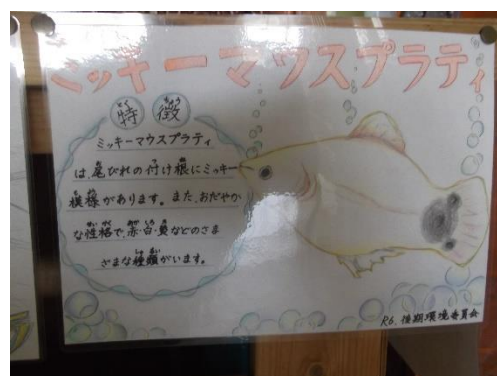 ミッキーマウスプラティ
特徴
ミッキーマウスプラティ
は、尾びれの付け根にミッキー
模様があります。また、おだやか
な性格で、赤・白・黄などのさま
ざまな種類がいます。
R6. 後期環境委員会